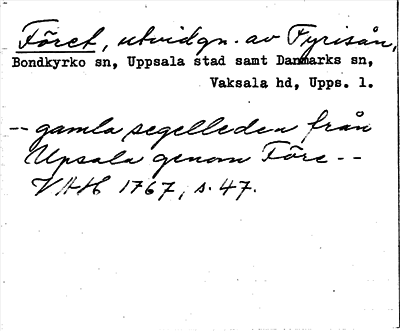 Föret, utvidgn. av Fyrisån,
Bondkyrko sn, Uppsala stad samt Danmarks sn,
Vaksala hd, Upps. l.
-- gamla segelleden från
Upsala genom Före --
VHH 1767, s. 47.